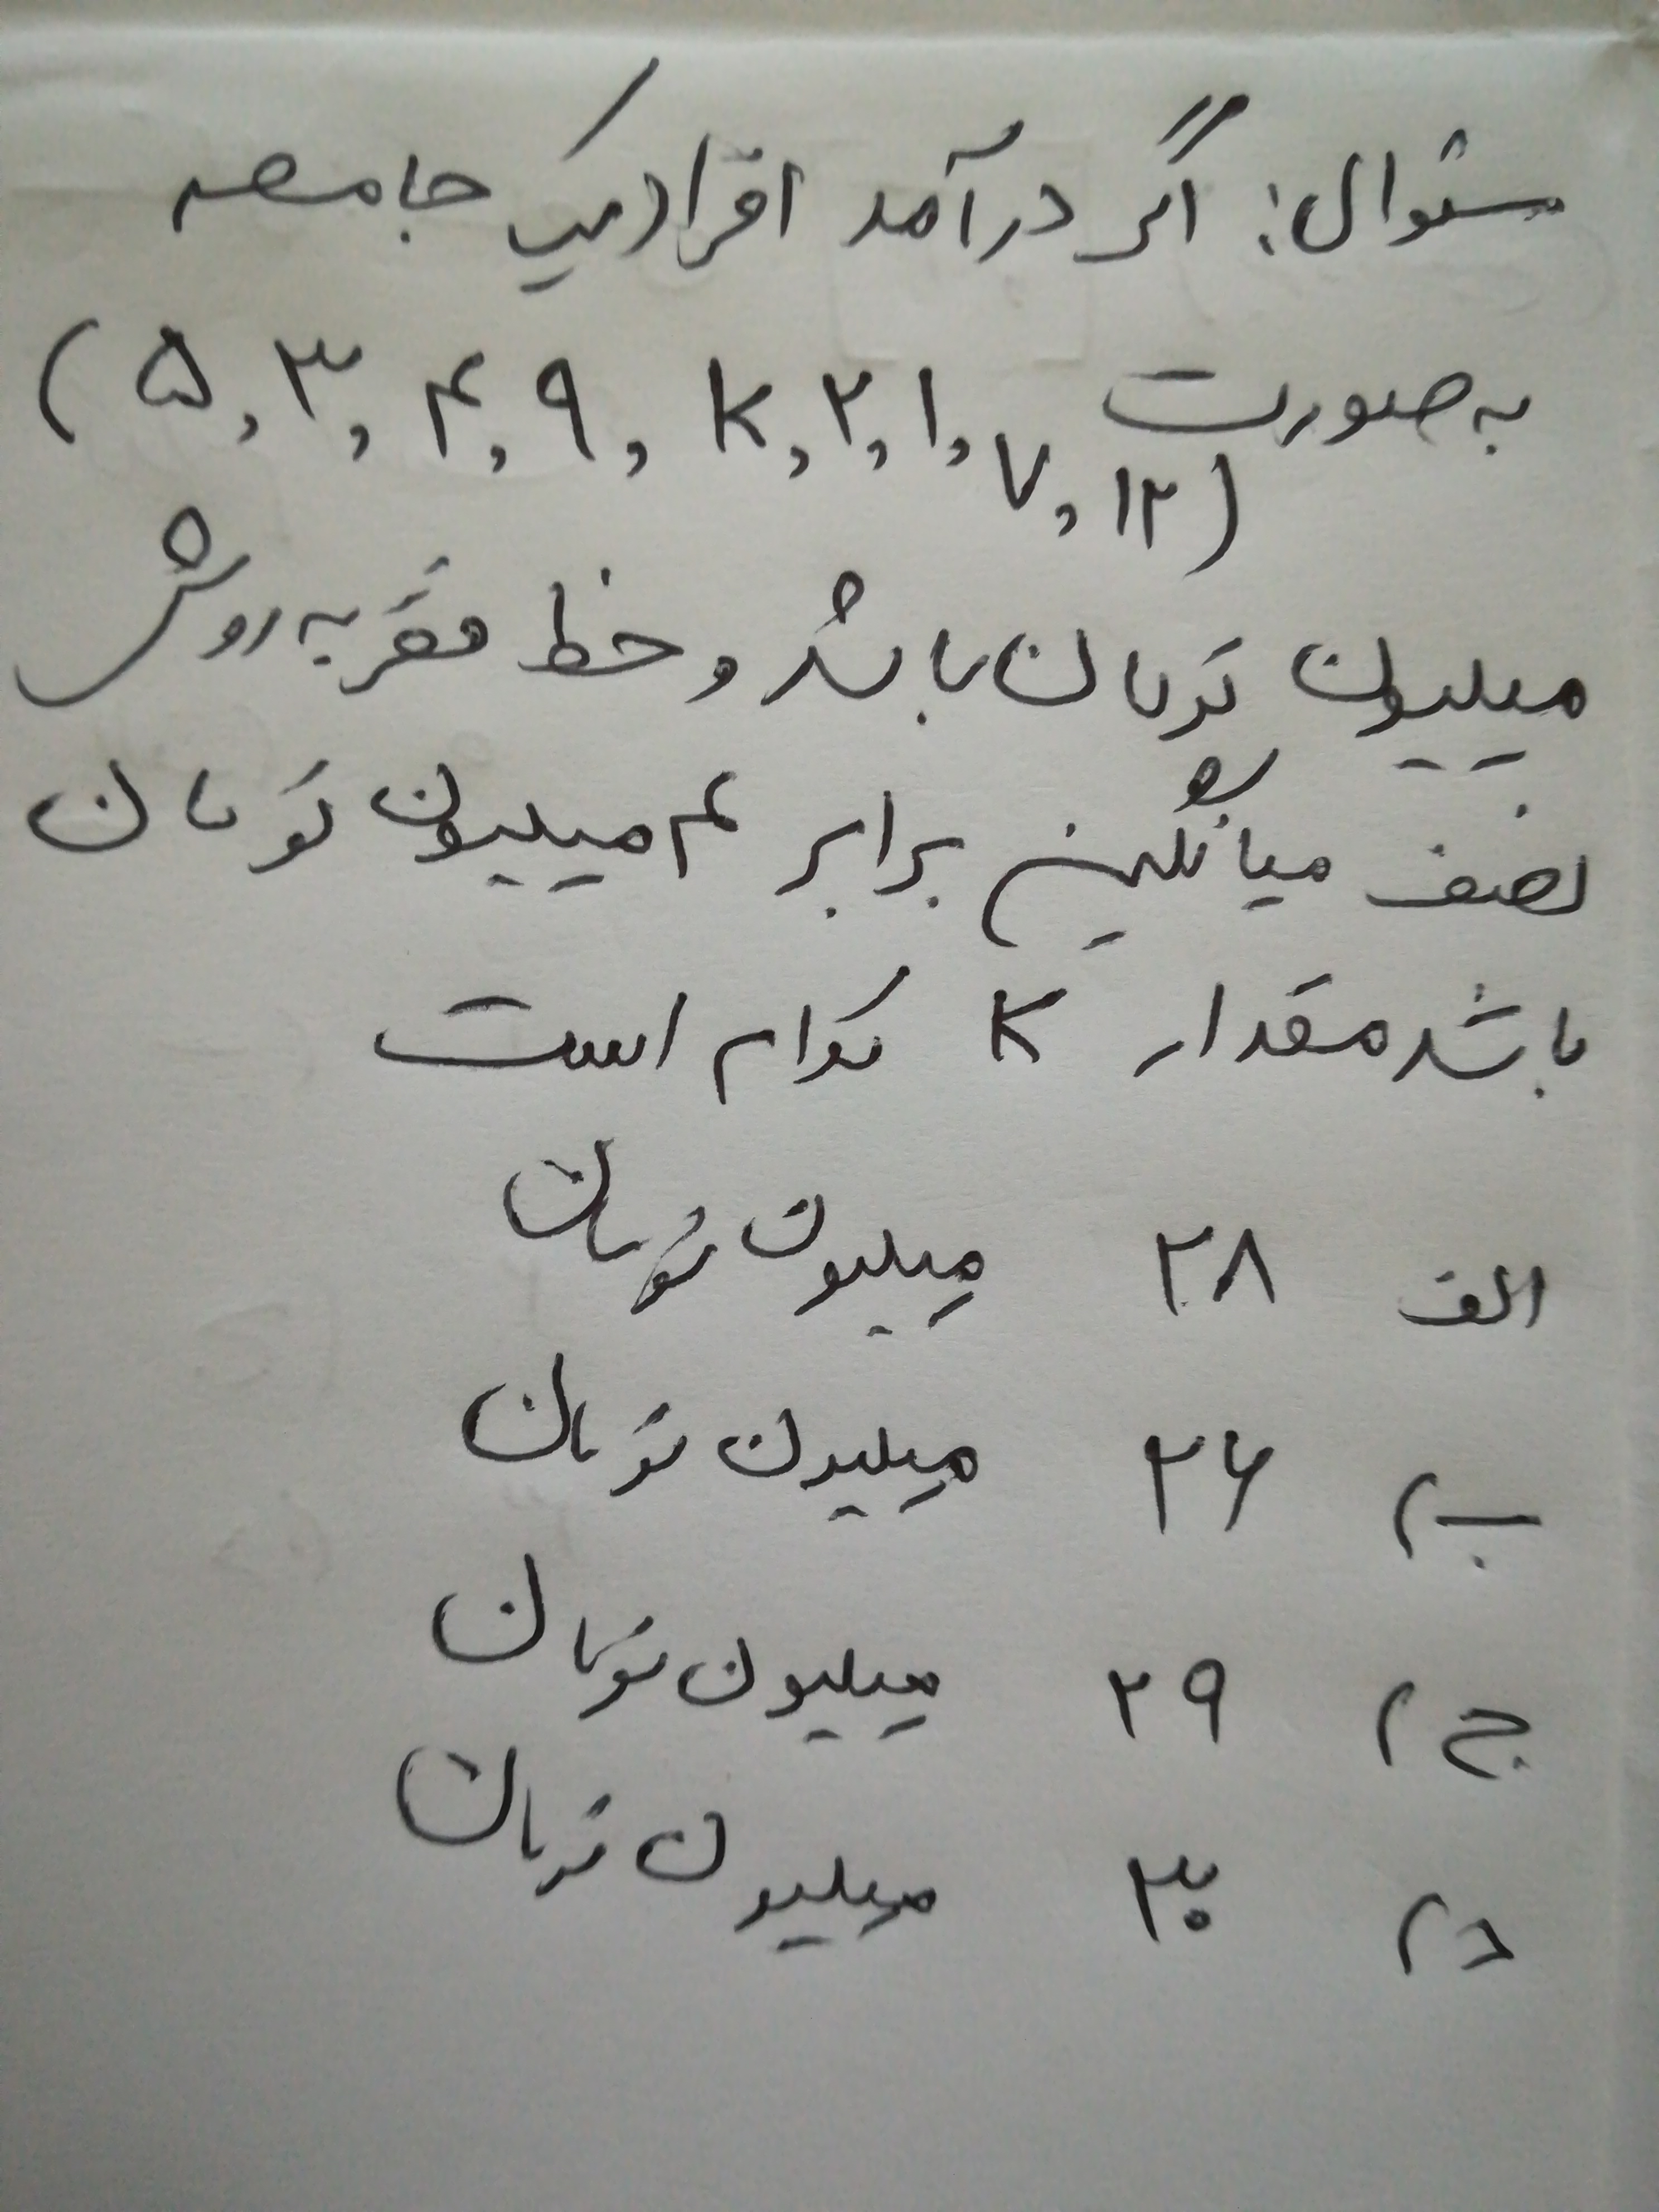 سئوال: اگر درآمد افراد یک جامعه
به صورت ۵, ۳, ۴, ۹, k, ۲, ۱, )
( ۷, ۱۲
میلیون تومان باشد و خط فقر به روش
نصف میانگین برابر ۴ میلیون تومان
باشد مقدار K کدام است
الف ۲۸ میلیون تومان
ب) ۲۶ میلیون تومان
ج) ۲۹ میلیون تومان
د) ۳۰ میلیون تومان